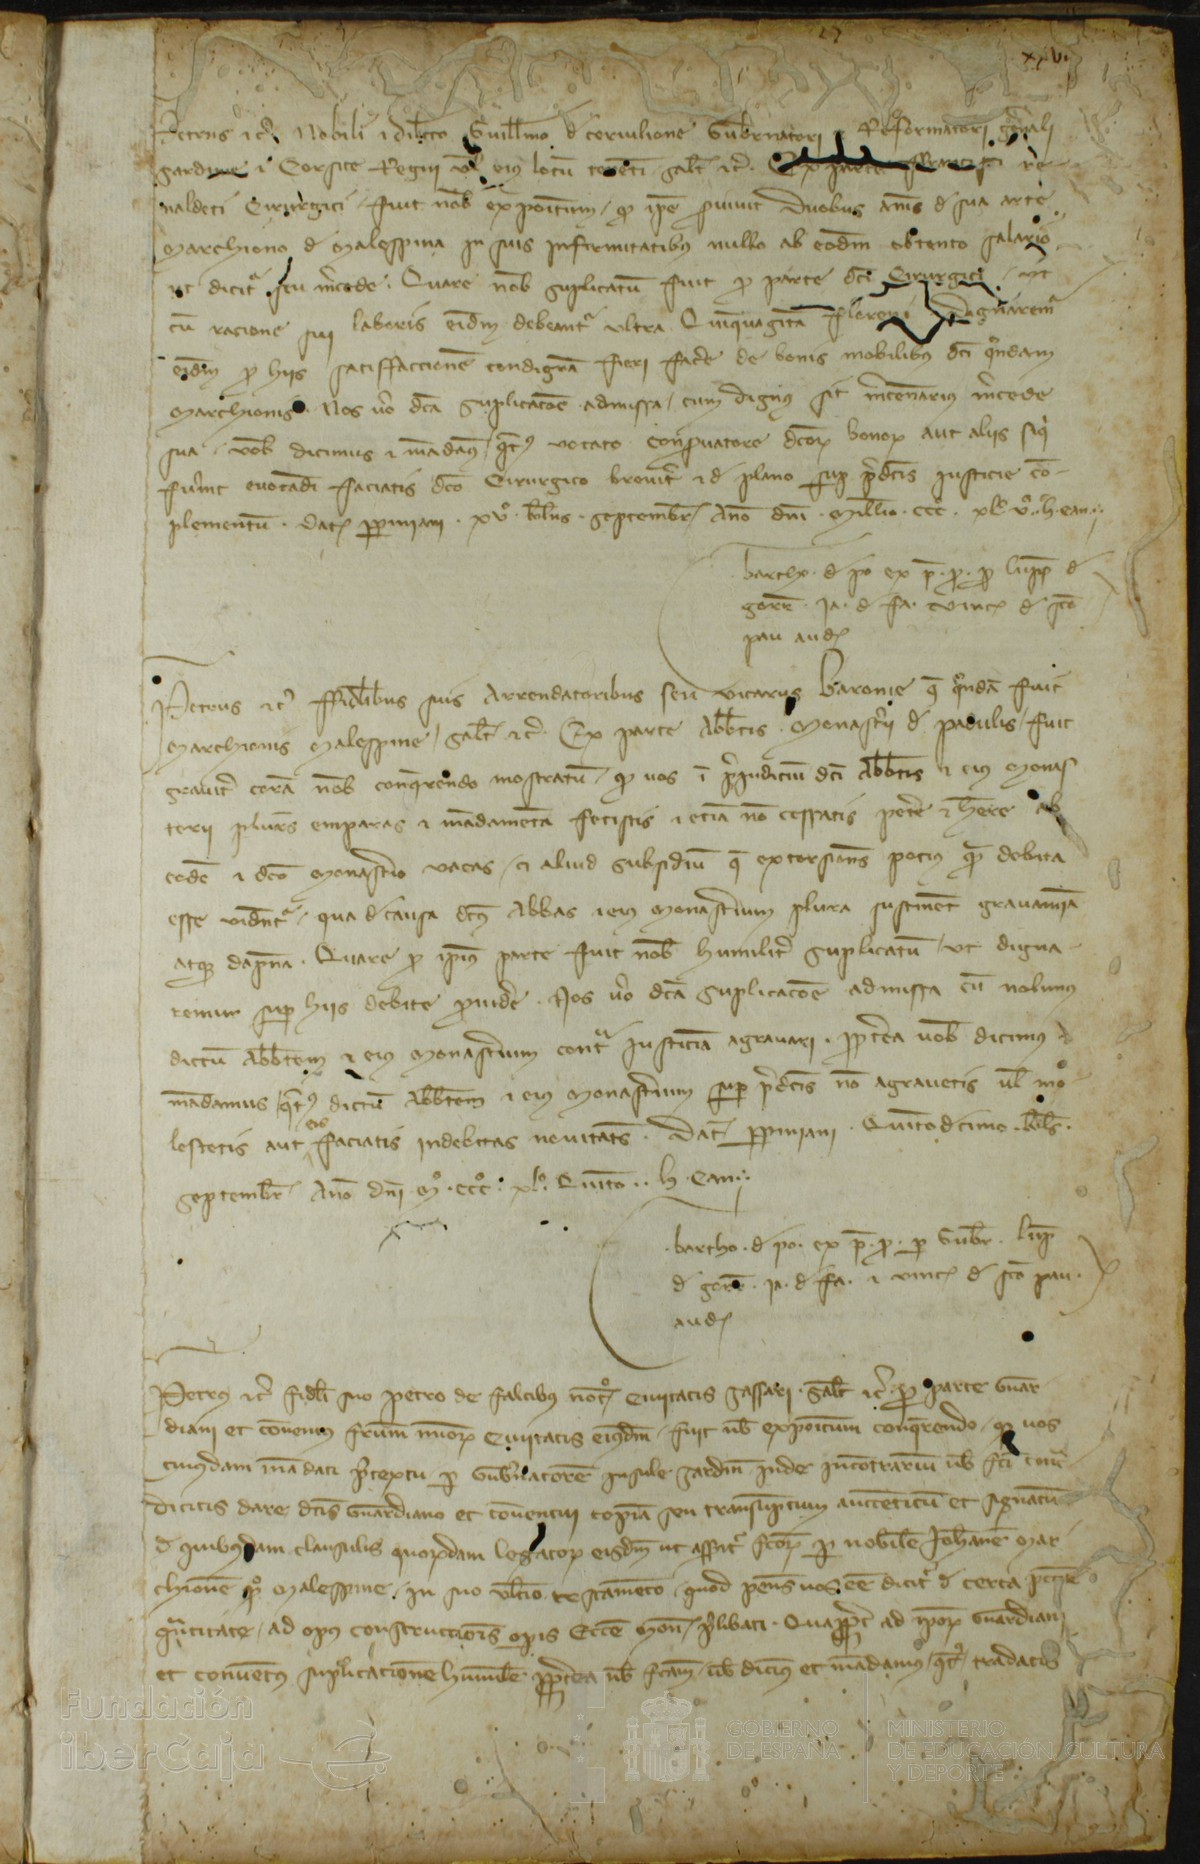 xxvi
Petrus etc Nobili et dilecto Guillmo de Cervilione Gubernatori et Reformatori generali
Sardinie et Corsice Regni vel eius locum tenenti saltm etc. Ex parte Re
naldeti Cirurgici fuit nob expositum qd ipse servivit duobus annis de sua arte
Marchiono de Malespina in suis infirmitatibus nullo ab eodem obtento salario
ut dicitr seu mercede. Quare nob supplicatum fuit pro parte dci Cirurgici ut
cum racione sui laboris eidem debeantr ultra Quinquaginta florenos dignaremr
eidem pro hiis satisffaccionem condignam fieri facere de bonis mobilibus dci quondam
Marchionis. Nos vero dca supplicacoe admissa cum dignus sit mercenarius mercede
sua vob dicimus et mandamus qtus vocato conservatore dcorum bonorum aut aliis siqui
fuerint evocandi faciatis dco Cirurgico breviter et de plano super predcis iusticie com
plementum. Dat perpiniani. xvo. klns. septembr Anno dni Millio. ccc. xlo. vo. h. eam
bartho. de po ex p. p. pro lupp de
gorre. Ja. de fa. et vinc de sco
pau aud
Petrus etc ffidelibus suis Arrendatoribus seu vicariis Baronie que quondam fuit
Marchionis Malespine saltm etc. Ex parte Abbtis Monasterii de padulis fuit
graviter coram nob conquerendo monstratum qd vos in preiudicium dci Abbtis et eius Monas
terii plures emparas et mandamenta fecistis et etiam non cessatis petere et habere ab
eodem et dco Monasterio vacas et aliud subsidium que extorsiones pocius quam debita
esse videntr qua de causa dcus Abbas et eius Monasterium plura sustinent gravamina
atque dampna. Quare pro ipsius parte fuit nob humiliter supplicatum ut digna
remur super hiis debite providere. Nos vero dca supplicacoe admissa cum nolimus
dictum Abbtem et eius Monasterium contra Justiciam agravari. propterea vob dicimus et
mandamus qtus dictum Abbtem et eius Monasterium super predcis non agravetis vel mo
lestetis aut eis faciatis indebitas novitates. Dat perpiniani. Quintodecimo. klns.
septembr Anno dni Mo. ccco. xlo. Quinto. h. eam
bartho. de po. ex p. p. per Gubr. lupp
de gorre. Ja. de fa. et vinc de sco pau.
aud
Petrus etc fideli suo petro de falcibus notro Civitatis Cassari. saltm etc. pro parte Guar
diani et conventus frum minorum Civitatis eiusdem fuit nob expositum conquerendo qd vos
cuiusdam mandati pretextu per Gubernatorem insule Sardinie inde in contrarium vob fci contra
dicitis dare dcis Guardiano et conventui copiam seu transumptum autenticum et signatum
de quibusdam clausulis quorundam legatorum eisdem ut asseritr fcorum per nobilem Johanem Mar
chionem quo Malespine in suo ultimo testamento quod penes vos esse dicitr de certa peccunie
quantitate ad opus construccionis operis Eccle Mon prelibati. Quapropter ad ipsorum Guardiani
et conventus supplicationem humilem propterea nob fcam vob dicimus et mandamus qtus tradatis
Fundación
iberCaja
GOBIERNO
DE ESPAÑA
MINISTERIO
DE EDUCACIÓN, CULTURA
Y DEPORTE